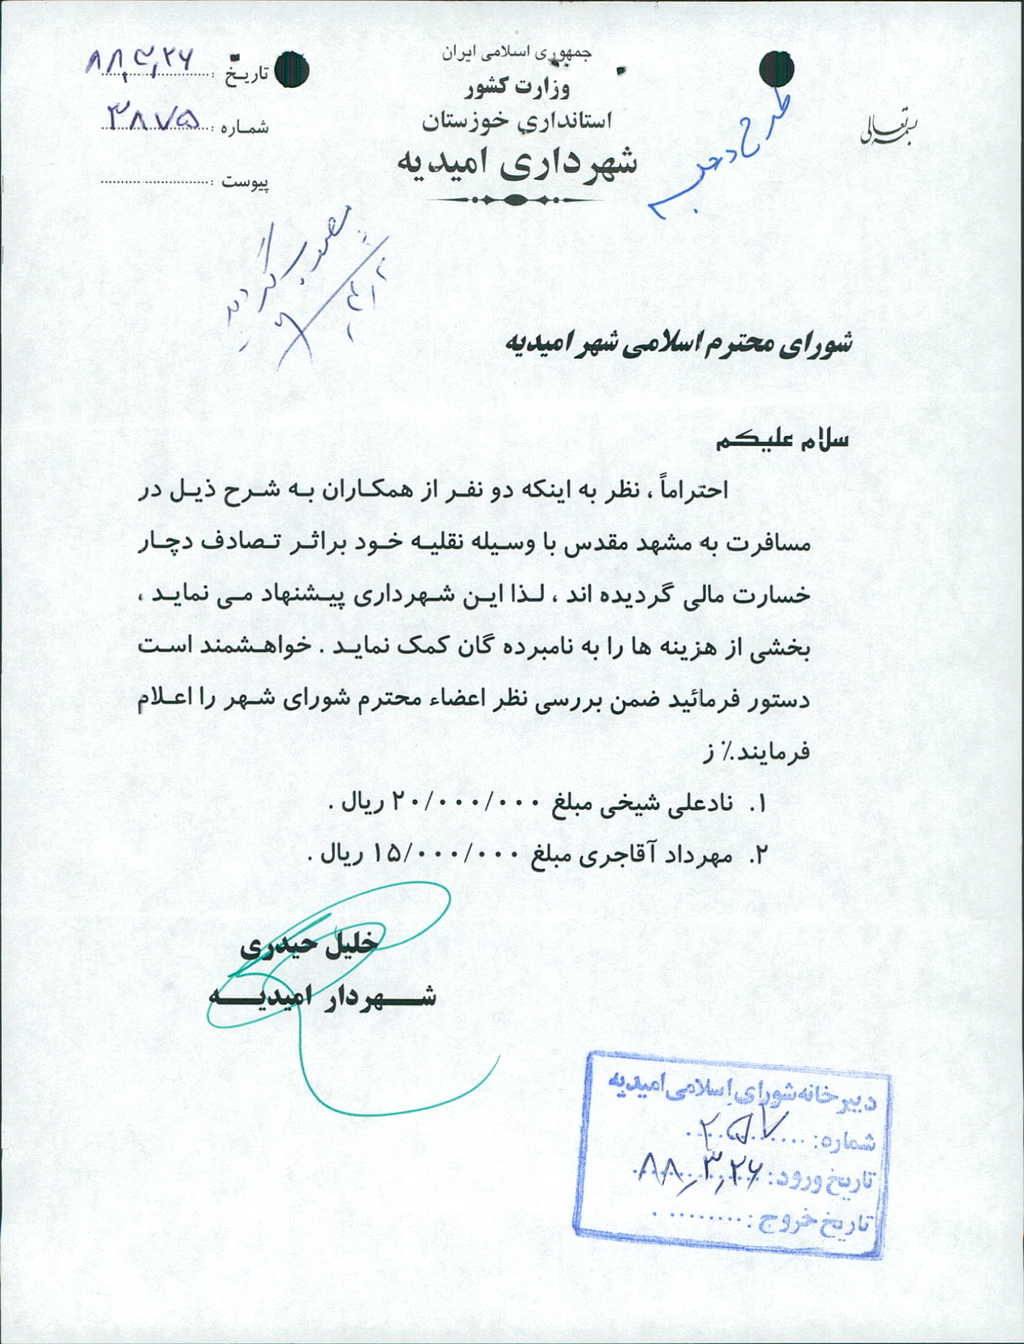 بسمه تعالی
جمهوری اسلامی ایران
وزارت کشور
استانداری خوزستان
شهرداری امیدیه
تاریخ : ۸۸,۳,۲۶
شماره : ۳۸۷۵
پیوست :
طرح در جلسه
تصویب گردید
شورای محترم اسلامی شهر امیدیه
سلام علیکم
احتراماً ، نظر به اینکه دو نفر از همکاران به شرح ذیل در
مسافرت به مشهد مقدس با وسیله نقلیه خود براثر تصادف دچار
خسارت مالی گردیده اند ، لذا این شهرداری پیشنهاد می نماید ،
بخشی از هزینه ها را به نامبرده گان کمک نماید . خواهشمند است
دستور فرمائید ضمن بررسی نظر اعضاء محترم شورای شهر را اعلام
فرمایند.٪ ز
۱. نادعلی شیخی مبلغ ۲۰/۰۰۰/۰۰۰ ریال .
۲. مهرداد آقاجری مبلغ ۱۵/۰۰۰/۰۰۰ ریال .
خلیل حیدری
شهردار امیدیه
دبیرخانه شورای اسلامی امیدیه
شماره: ۲۵۷
تاریخ ورود: ۸۸,۳,۲۶
تاریخ خروج: